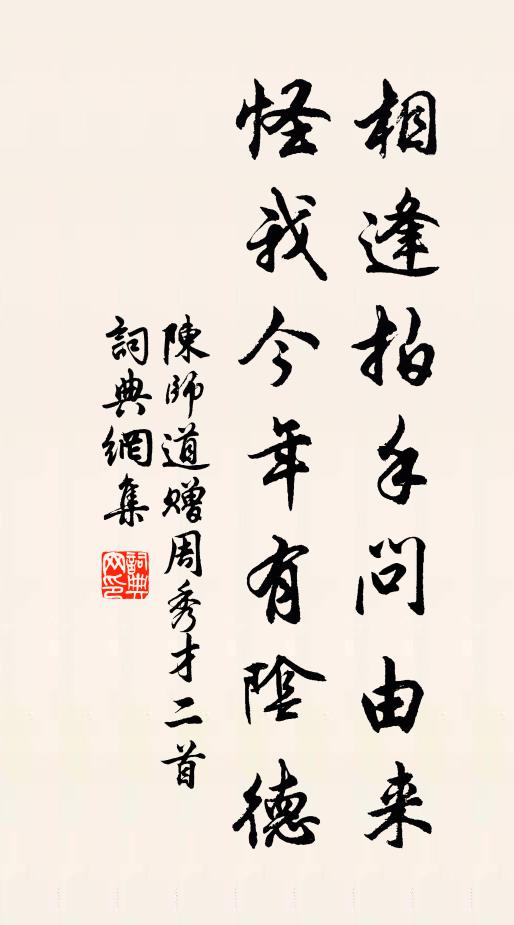 相逢拍手問由来
怪我今年有陰德
陳師道贈周秀才二首
詞典網集
詞典網印